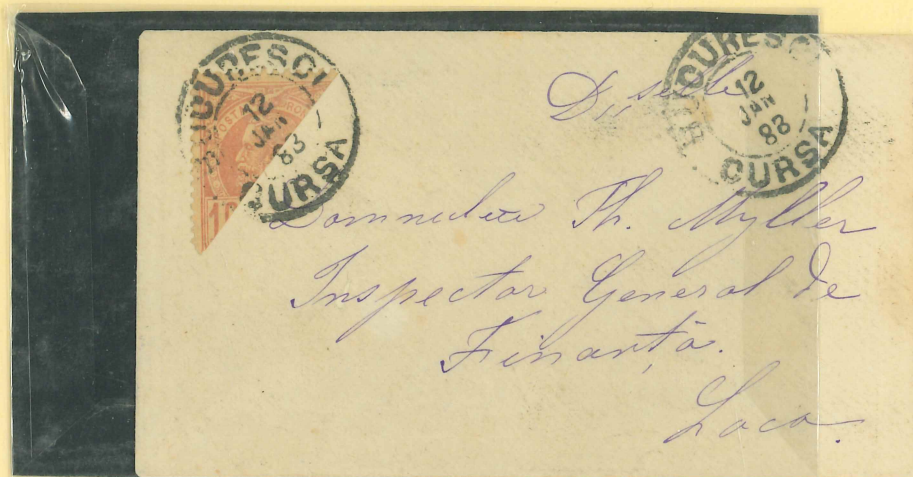 BUCURESCI
12
JAN
83
CURSA
BUCURESCI
12
JAN
83
CURSA
POSTA ROM
10
Domnului Th. Myller
Inspector General de
Finanță.
Loco.